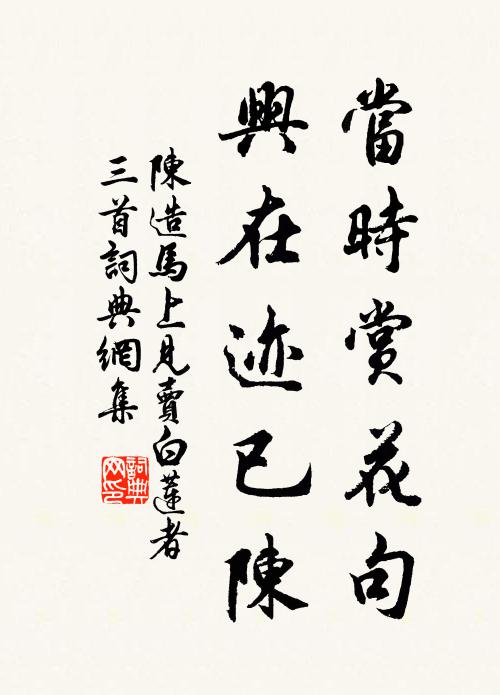 當時賞花句
興在迹已陳
陳造馬上見賣白蓮者
三首詞典網集
詞典
网印